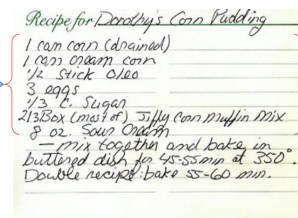 Recipe for Dorothy's Corn Pudding
1 can corn (drained)
1 can cream corn
1/2 stick oleo
3 eggs
1/3 c. sugar
2/3 Box (most of) Jiffy corn muffin mix
8 oz. sour cream
— mix together and bake in
buttered dish for 45-55 min at 350°
Double recipe: bake 55-60 min.